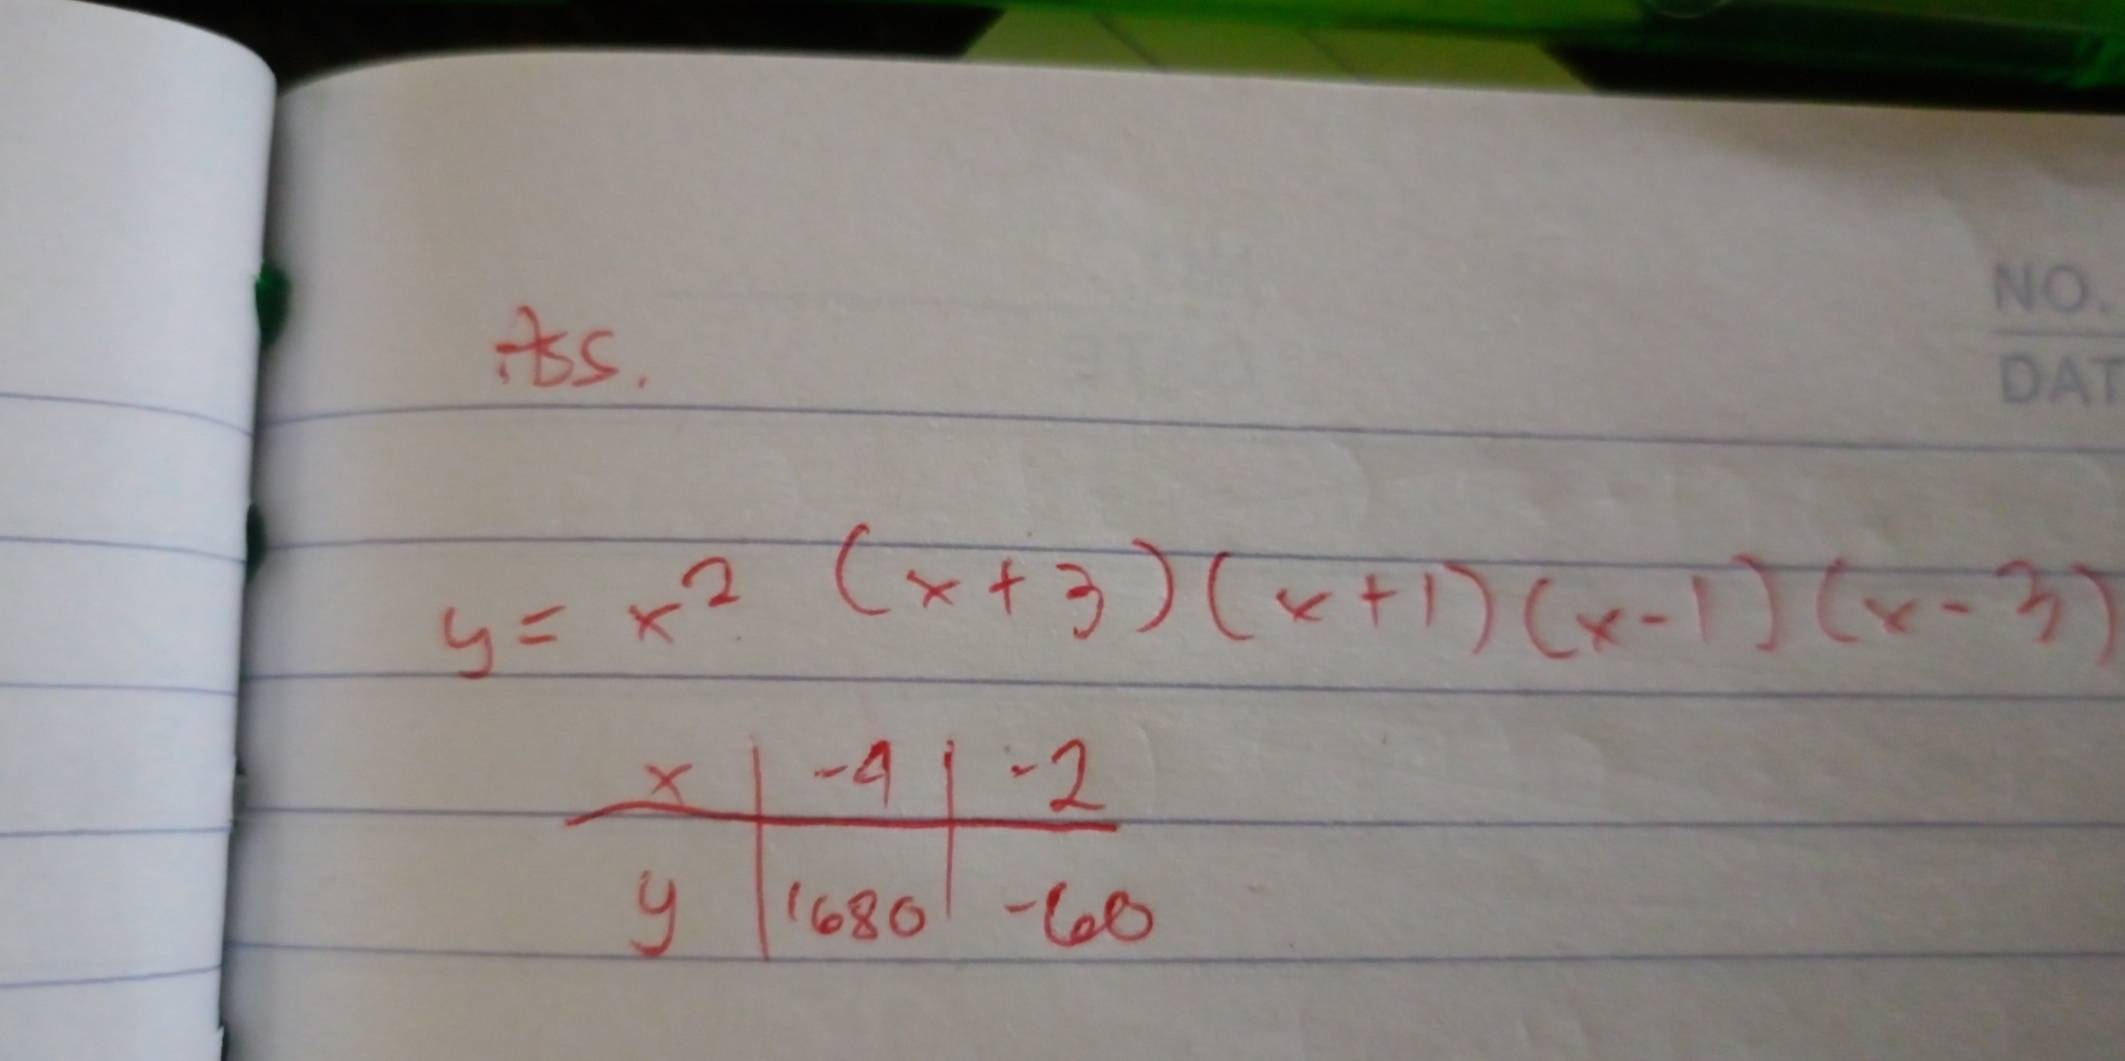 NO.
DAT
Ass.
y = x² (x+3)(x+1)(x-1)(x-3)
x | -4 | -2
y | 1680 | -60